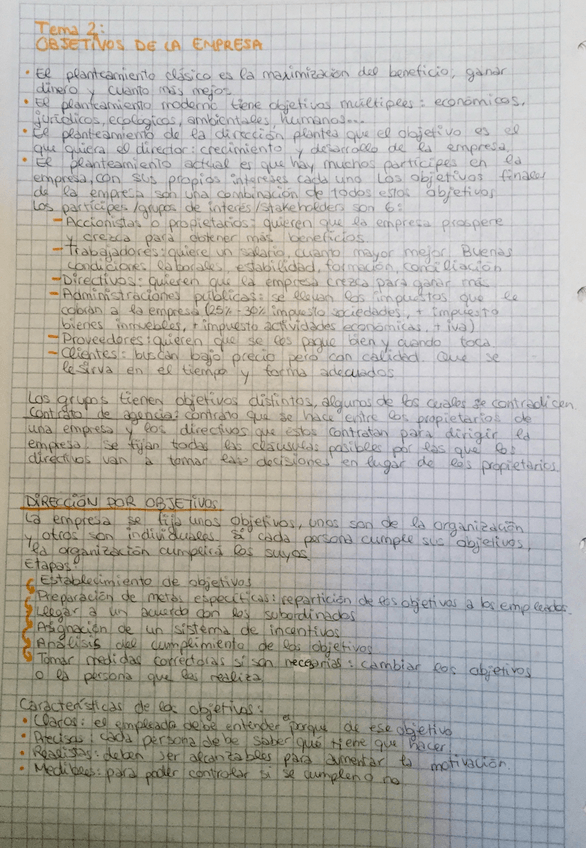 Tema 2:
OBJETIVOS DE LA EMPRESA
• El planteamiento clásico es la maximización del beneficio, ganar
dinero y cuanto más mejor.
• El planteamiento moderno tiene objetivos múltiples: económicos,
jurídicos, ecológicos, ambientales, humanos...
• El planteamiento de la dirección plantea que el objetivo es el
que quiera el director: crecimiento y desarrollo de la empresa.
• El planteamiento actual es que hay muchos partícipes en la
empresa, con sus propios intereses cada uno. Los objetivos finales
de la empresa son una combinación de todos estos objetivos
Los partícipes/grupos de interés/stakeholders son 6:
- Accionistas o propietarios: quieren que la empresa prospere
y crezca para obtener más beneficios.
- Trabajadores: quiere un salario, cuanto mayor mejor. Buenas
condiciones laborales, estabilidad, formación, conciliación
- Directivos: quieren que la empresa crezca para ganar más
- Administraciones públicas: se llevan los impuestos que le
cobran a la empresa (25% - 30% impuesto sociedades, + impuesto
bienes inmuebles, + impuesto actividades económicas, + iva)
- Proveedores: quieren que se los pague bien y cuando toca
- Clientes: buscan bajo precio pero con calidad. Que se
le sirva en el tiempo y forma adecuados
Los grupos tienen objetivos distintos, algunos de los cuales se contradicen
Contrato de agencia: contrato que se hace entre los propietarios de
una empresa y los directivos que estos contratan para dirigir la
empresa. Se fijan todas las cláusulas posibles por las que los
directivos van a tomar las decisiones en lugar de los propietarios.
DIRECCIÓN POR OBJETIVOS
La empresa se fija unos objetivos, unos son de la organización
y otros son individuales. Si cada persona cumple sus objetivos,
la organización cumplirá los suyos
Etapas:
Establecimiento de objetivos
Preparación de metas específicas: repartición de los objetivos a los empleados.
Llegar a un acuerdo con los subordinados
Asignación de un sistema de incentivos
Análisis del cumplimiento de los objetivos
Tomar medidas correctoras si son necesarias: cambiar los objetivos
o la persona que los realiza
Características de los objetivos:
• Claros: el empleado debe entender el porque de ese objetivo
• Precisos: cada persona debe saber que tiene que hacer
• Realistas: deben ser alcanzables para aumentar la motivación
• Medibles: para poder controlar si se cumplen o no